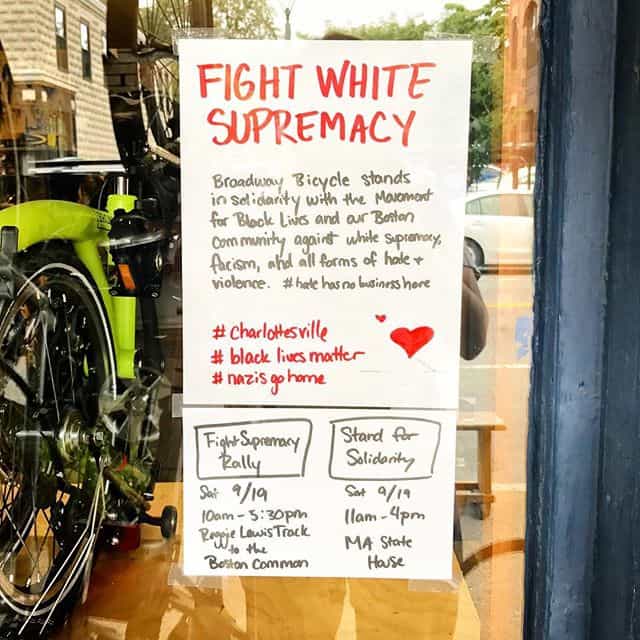 FIGHT WHITE
SUPREMACY
Broadway Bicycle stands
in solidarity with the Movement
for Black Lives and our Boston
Community against white supremacy,
facism, and all forms of hate +
violence. #hate has no business here
# Charlottesville
# black lives matter
# nazis go home
Fight Supremacy
Rally
Sat 9/19
10am - 5:30pm
Reggie Lewis Track
to the
Boston Common
Stand for
Solidarity
Sat 9/19
11am - 4pm
MA State
House